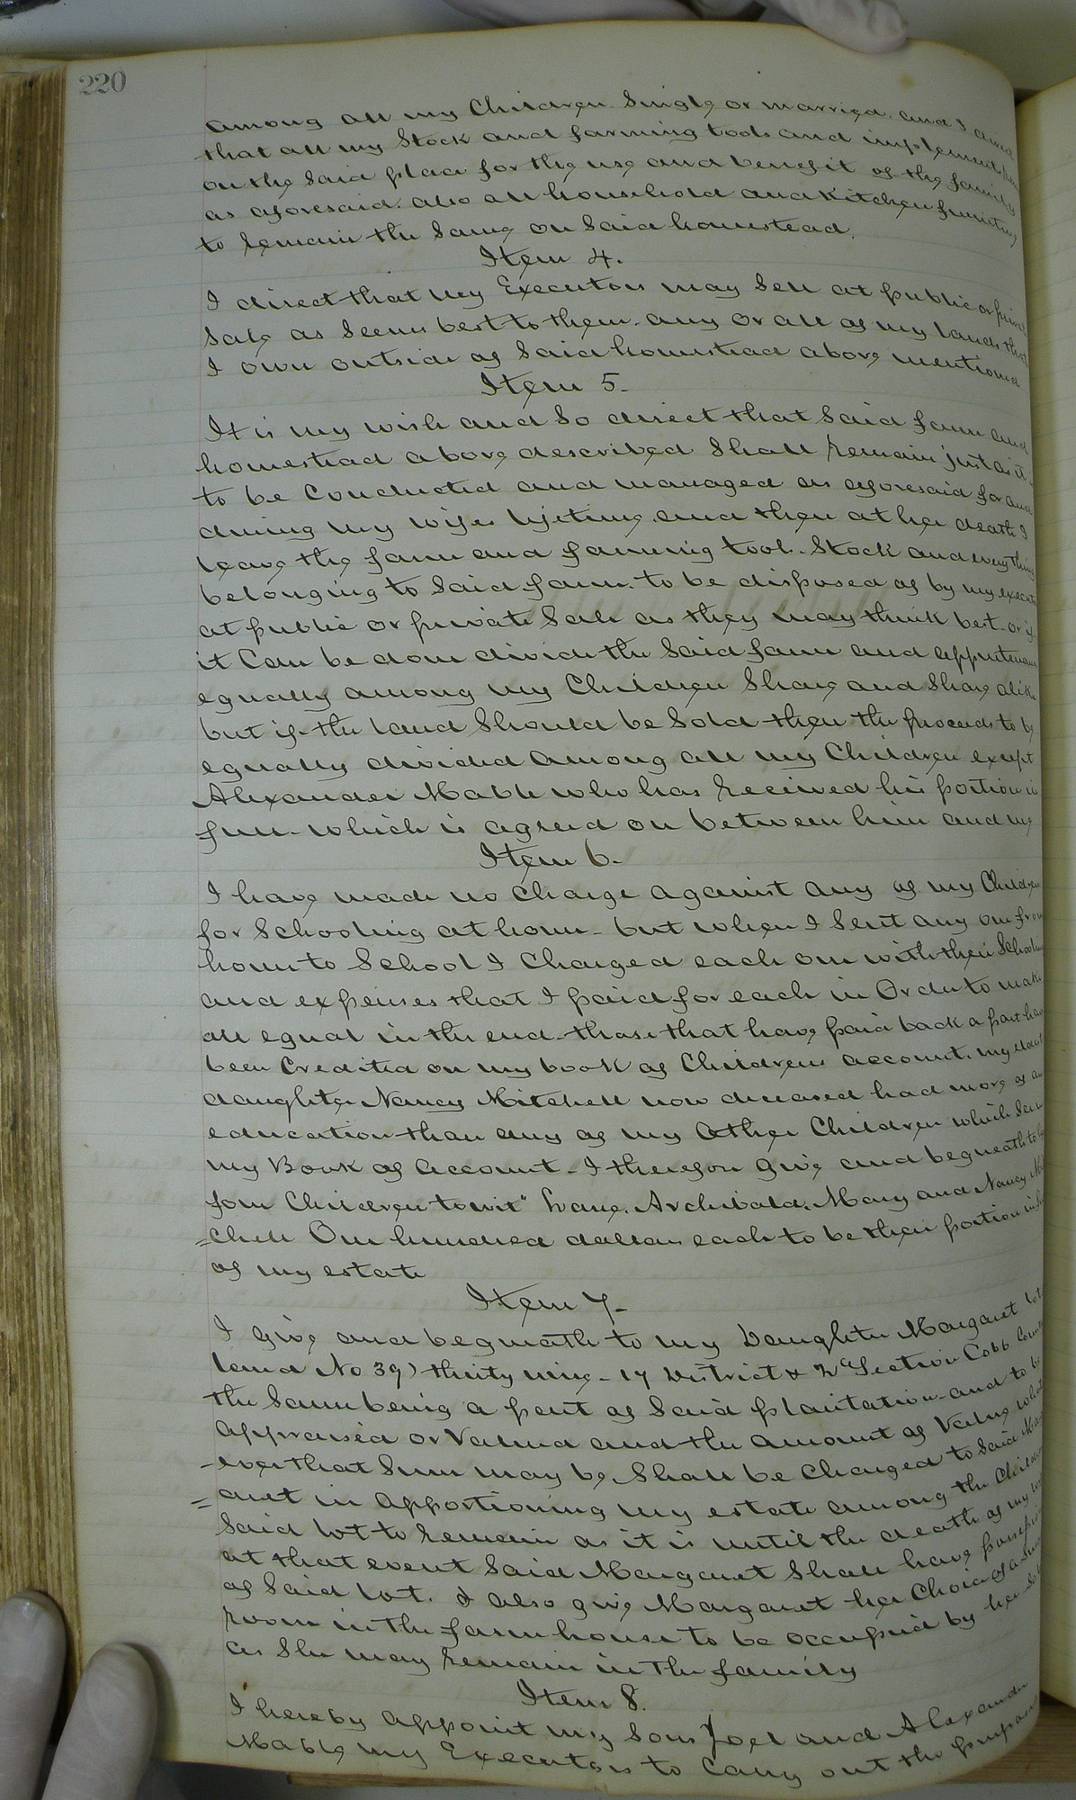 220
among all my Children Single or married. and I direct
that all my Stock and farming tools and implements
on the Said place for the use and benefit of the family
as aforesaid. also all household and Kitchen furniture
to remain the Same on Said homestead.
Item 4.
I direct that my Executors may Sell at public or private
Sale as Seems best to them. any or all of my lands that
I own outside of Said homestead above mentioned
Item 5.
It is my wish and So direct that Said farm and
homestead above described Shall remain just as it is
to be Conducted and managed as aforesaid for and
during my wifes lifetime. and then at her death I
leave the farm and farming tools. Stock and every thing
belonging to Said farm. to be disposed of by my executors
at public or private Sale as they may think best. or if
it Can be done divide the Said farm and appurtenances
equally among my Children Share and Share alike
but if the land Should be Sold then the proceeds to be
equally divided among all my Children except
Alexander Mable who has received his portion in
full. which is agreed on between him and me
Item 6.
I have made no Charge against any of my Children
for Schooling at home. but when I Sent any one from
home to School I Charged each one with their Schooling
and expenses that I paid for each in Order to make
all equal in the end. those that have paid back a part have
been Credited on my book of Childrens account. my eldest
daughter Nancy Mitchell now deceased had more of an
education than any of my Other Children which See
my Book of account. I therefore Give and bequeath to her
four Children towit" Lane. Archibald. Mary and Nancy Mit
=chell One hundred dollars each to be their portion in full
of my estate
Item 7.
I Give and bequeath to my Daughter Margaret lot
land No 39) thirty nine. 17 District & 2nd Section Cobb County
the Same being a part of Said plantation. and to be
appraised or Valued and the amount of Value what
-ever that Sum may be, Shall be Charged to Said Marg
=aret in apportioning my estate among the Children
Said lot to remain as it is until the death of my wife
at that event Said Margaret Shall have possession
of Said lot. I also give Margaret her Choice of a
room in the farm house to be occupied by her
as She may remain in the family
Item 8.
I hereby appoint my Sons Joel and Alexander
Mable my Executors to Carry out the purposes